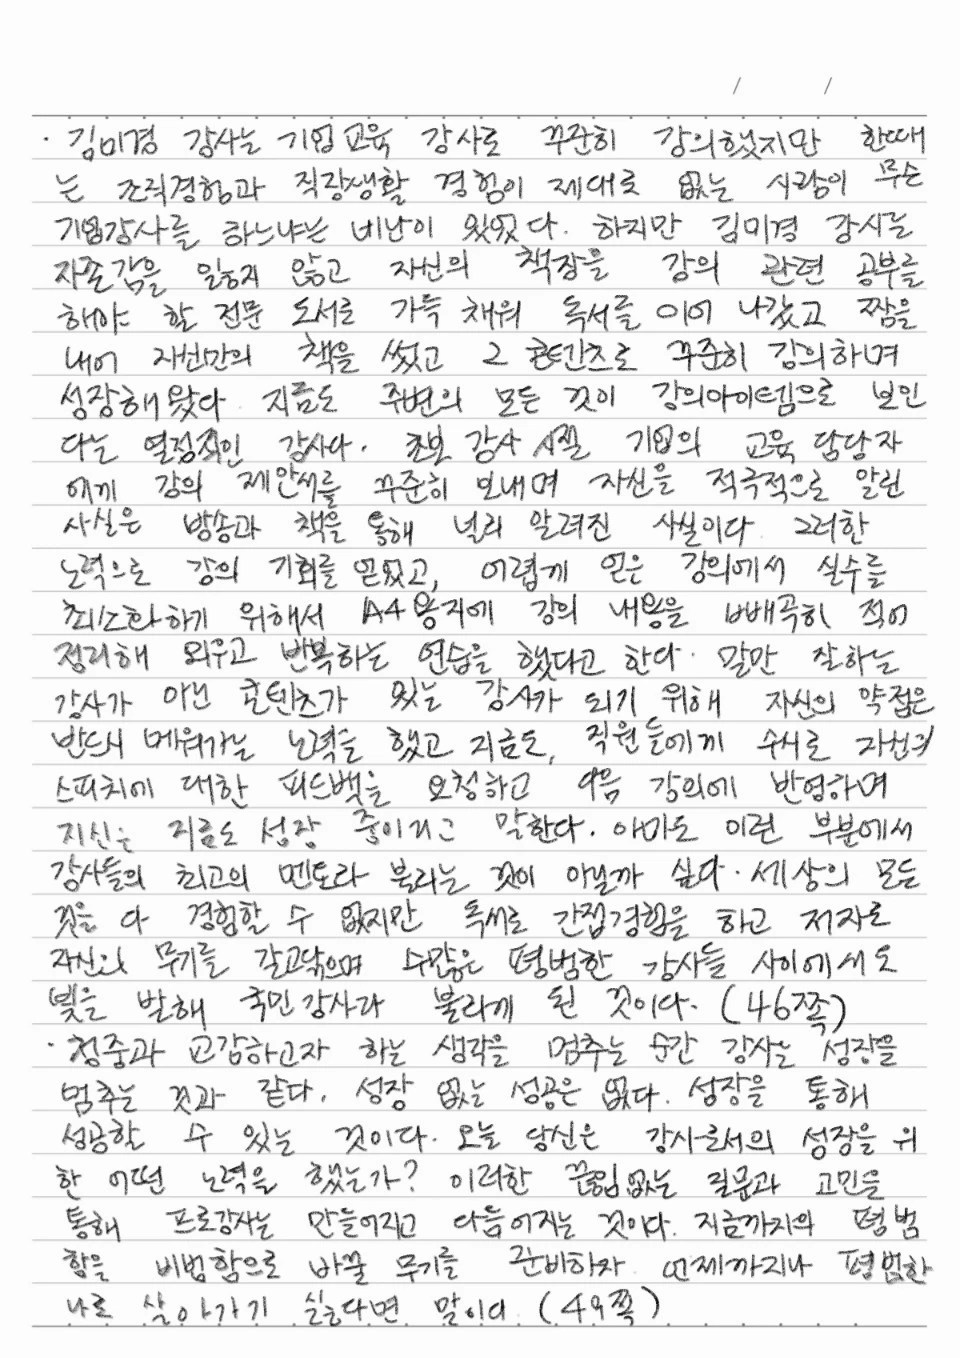 · 김미경 강사는 기업교육 강사로 꾸준히 강의했지만 한때
는 조직경험과 직장생활 경험이 제대로 없는 사람이 무슨
기업강사를 하느냐는 비난이 있었다. 하지만 김미경 강사는
자존감을 잃지 않고 자신의 책장을 강의 관련 공부를
해야 할 전문 도서로 가득 채워 독서를 이어 나갔고 짬을
내어 자신만의 책을 썼고 그 콘텐츠로 꾸준히 강의하며
성장해 왔다. 지금도 주변의 모든 것이 강의아이템으로 보인
다는 열정적인 강사다. 초보 강사 시절 기업의 교육 담당자
에게 강의 제안서를 꾸준히 보내며 자신을 적극적으로 알린
사실은 방송과 책을 통해 널리 알려진 사실이다. 그러한
노력으로 강의 기회를 얻었고, 어렵게 얻은 강의에서 실수를
최소화하기 위해서 A4용지에 강의 내용을 빼곡히 적어
정리해 외우고 반복하는 연습을 했다고 한다. 말만 잘하는
강사가 아닌 콘텐츠가 있는 강사가 되기 위해 자신의 약점은
반드시 메워가는 노력을 했고 지금도, 직원들에게 수시로 자신의
스피치에 대한 피드백을 요청하고 다음 강의에 반영하며
자신은 지금도 성장 중이라고 말한다. 아마도 이런 부분에서
강사들의 최고의 멘토라 불리는 것이 아닐까 싶다. 세상의 모든
것을 다 경험할 수 없지만 독서로 간접경험을 하고 저자로
자신의 무기를 갈고닦으며 수많은 평범한 강사들 사이에서도
빛을 발해 국민강사라 불리게 된 것이다. (46쪽)
· 청중과 교감하고자 하는 생각을 멈추는 순간 강사는 성장을
멈추는 것과 같다. 성장 없는 성공은 없다. 성장을 통해
성공할 수 있는 것이다. 오늘 당신은 강사로서의 성장을 위
한 어떤 노력을 했는가? 이러한 끊임없는 질문과 고민을
통해 프로강사는 만들어지고 다듬어지는 것이다. 지금까지의 평범
함을 비범함으로 바꿀 무기를 준비하자. 언제까지나 평범한
나로 살아가기 싫다면 말이다. (49쪽)